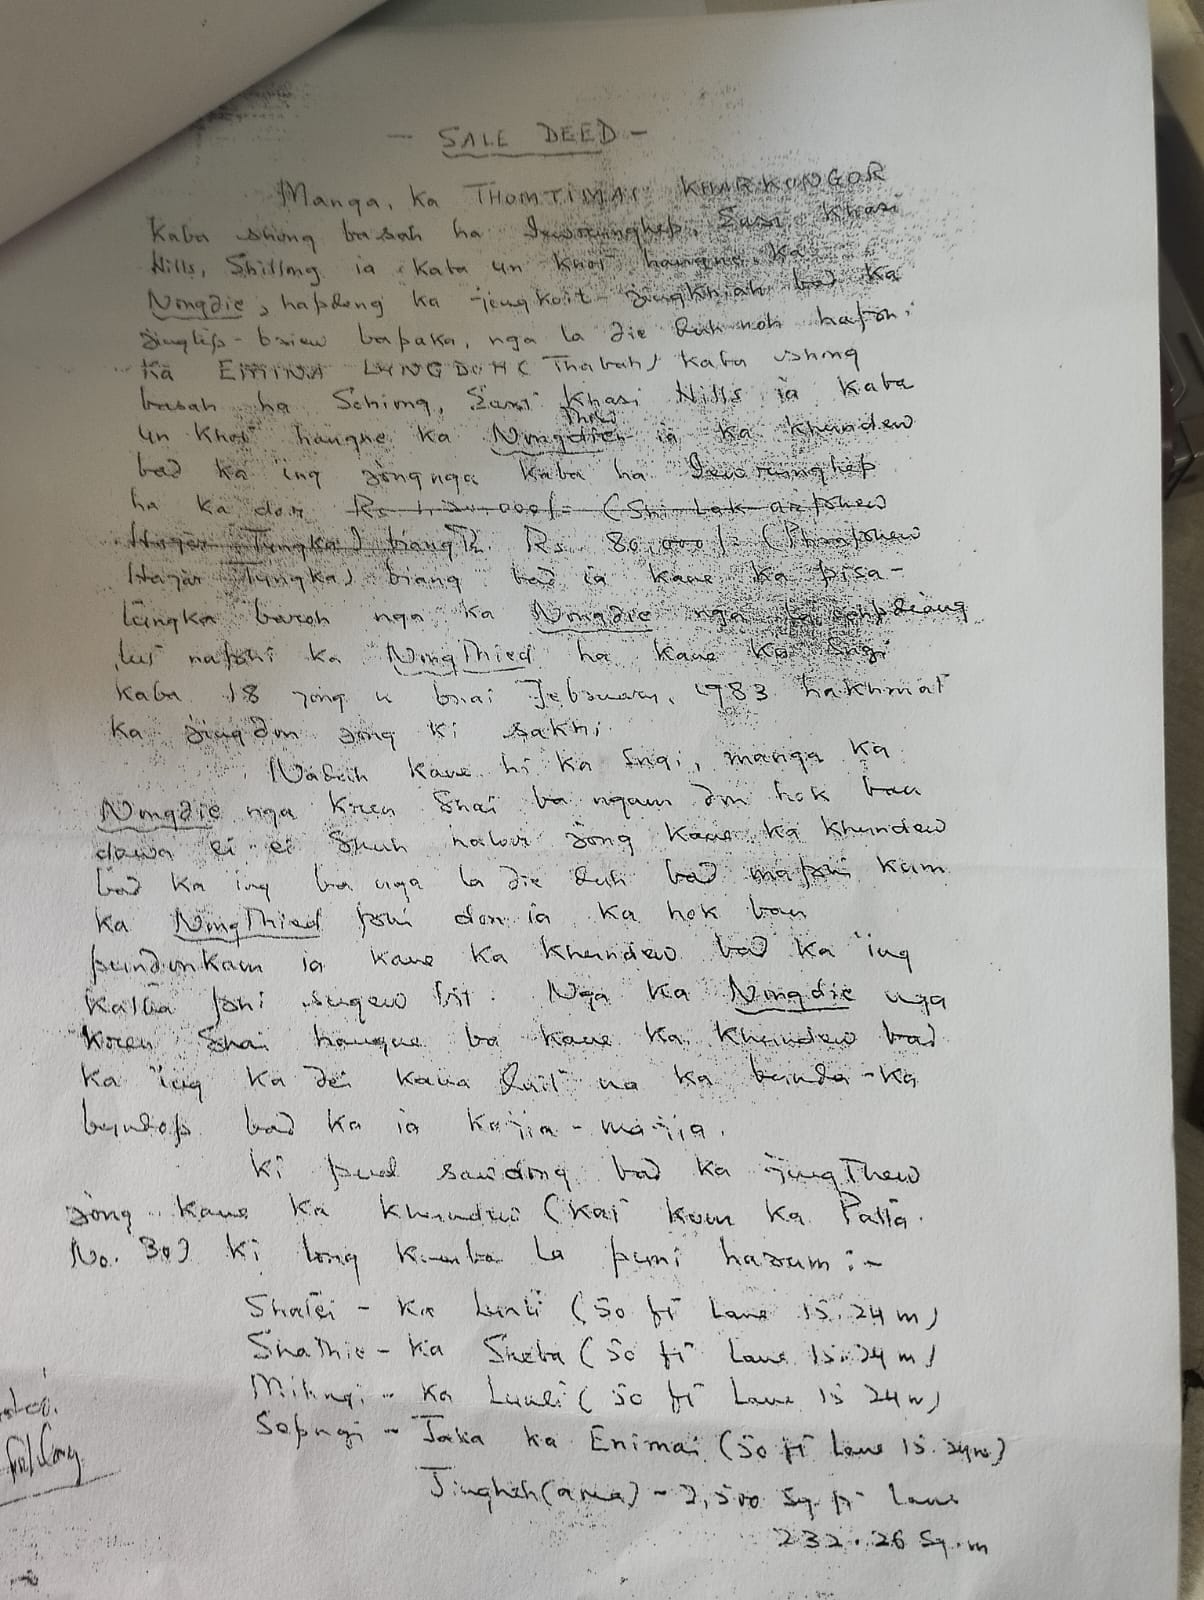 - SALE DEED -
Manga, Ka THOMTIMAI KHARKONGOR
Kaba shong basah ha Iewrynghep, East Khasi
Hills, Shillong ia kaba un khot hangne ka
Nongdie, hapdeng ka jingkoit-jingkhiah bad ka
jingtip-briew bapaka, nga la die duh noh haphi
Ka EMINA LYNGDOH (Thabah) kaba shong
basah ha Sohiong, East Khasi Hills ia kaba
un khot hangne ka Nongdie Thied ia ka khyndew
bad ka ing jong nga kaba ha Iewrynghep
ha ka dor Rs 1,20,000/= (Shi Lak arphew
Hajar Tyngka) biang Rs. 80,000/= (Phraphew
Hajar Tyngka) biang bad ia kane ka pisa-
tyngka baroh nga ka Nongdie nga la ïohpdiang
lut naphi ka NongThied ha kane ka Sngi
kaba 18 jong u bnai February, 1983 hakhmat
ka jingdon jong ki sakhi.
Naduh kane hi ka Sngi, manga ka
Nongdie nga kren Shai ba ngam don hok ban
dawa ei ei Shuh halor jong kane ka khyndew
bad ka ing ba nga la die duh bad maphi kum
ka NongThied phi don ia ka hok ban
pyndonkam ia kane ka khyndew bad ka ing
katba phi sngew bit. Nga ka Nongdie nga
kren Shai hangne ba kane ka khyndew bad
ka ing ka dei kaba khuit na ka bynda-ka
byndop bad ka ia kajia-majia.
Ki pud sawdong bad ka jingThew
jong kane ka khyndew (kat kum ka Patta
No. 30) ki long kumba la pyni harum :-
Shatei - Ka Lunli (50 ft Lane 15.24 m)
Shathie - Ka Sheba (50 ft Lane 15.24 m)
Mihngi - Ka Lunli (50 ft Lane 15 24 m)
Sepngi - Jaka ka Enimai (50 ft Lane 15.24m)
Jingheh (area) - 2,500 Sq. ft Lane
232.26 Sq.m